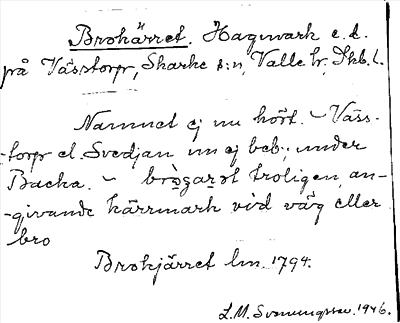 Brohärret. Hagmark e.d.
på Västorp, Skarke s:n, Valle hr, Skb. l.
Namnet ej nu hört. – Väss-
-torp el. Svedjan nu ej beb., under
Backa. – troligen an-
-givande kärrmark vid väg eller
bro
Brokjärret lm. 1794.
L.M. Svenungsson. 1946.